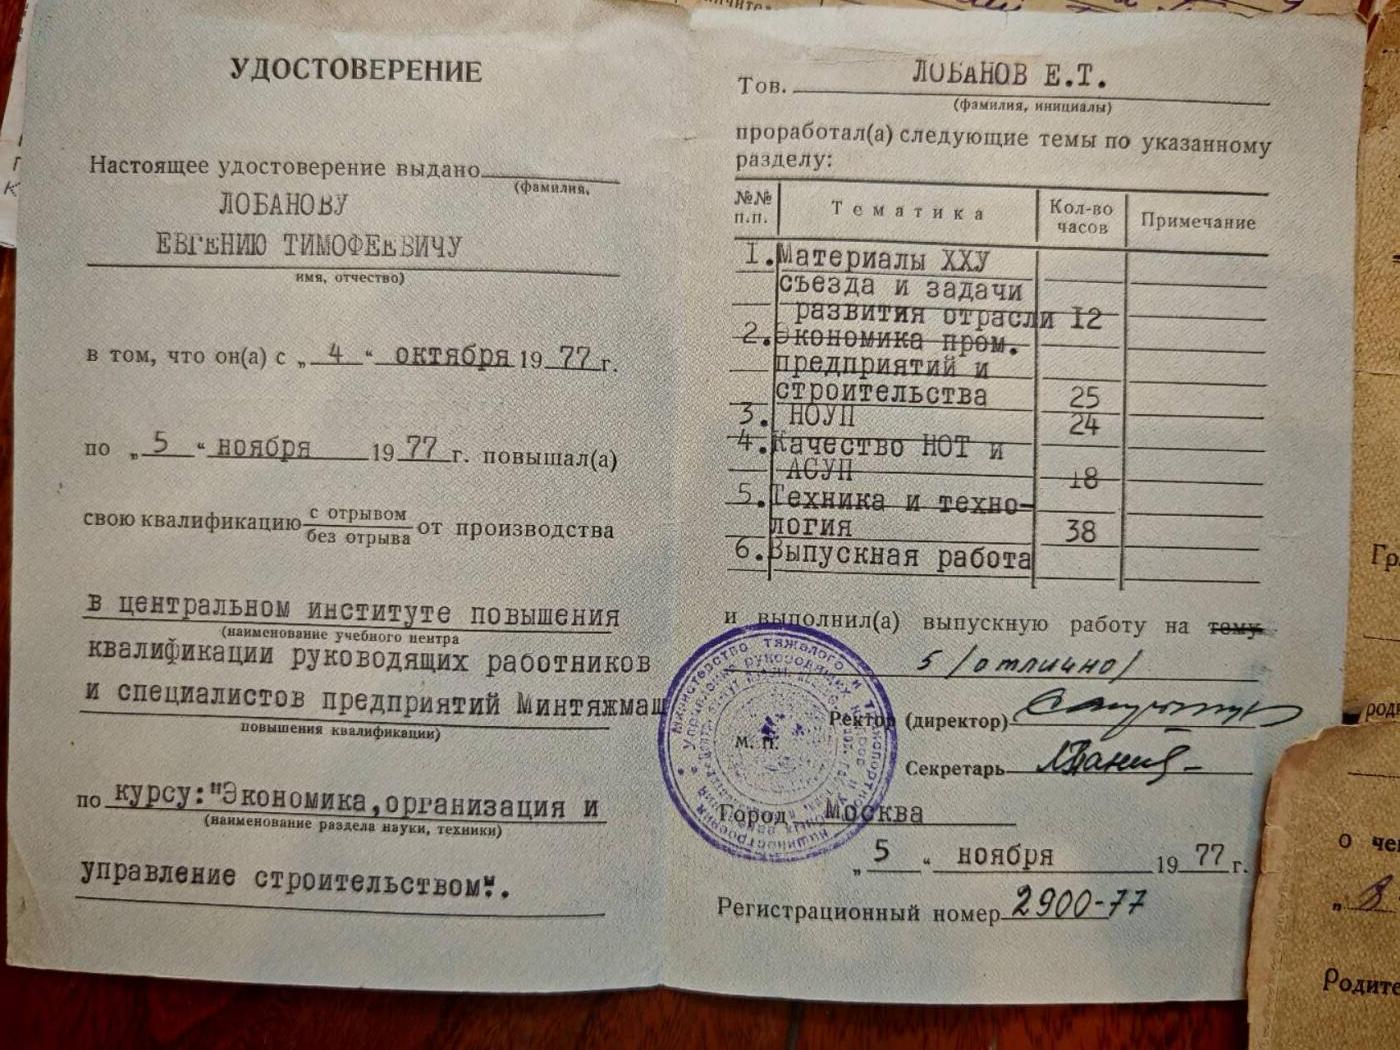 УДОСТОВЕРЕНИЕ
Настоящее удостоверение выдано
(фамилия,
ЛОБАНОВУ
ЕВГЕНИЮ ТИМОФЕЕВИЧУ
имя, отчество)
в том, что он(а) с „ 4 “ октября 19 77 г.
по „ 5 “ ноября 19 77 г. повышал(а)
свою квалификацию с отрывом
без отрыва от производства
в центральном институте повышения
(наименование учебного центра
квалификации руководящих работников
и специалистов предприятий Минтяжмаш
повышения квалификации)
по курсу:"Экономика,организация и
(наименование раздела науки, техники)
управление строительством".
Тов. ЛОБАНОВ Е.Т.
(фамилия, инициалы)
проработал(а) следующие темы по указанному
разделу:
№№ п.п. Тематика Кол-во часов Примечание
1. Материалы ХХУ
съезда и задачи
развития отрасли 12
2. Экономика пром.
предприятий и
строительства 25
3. НОУП 24
4. Качество НОТ и
АСУП 18
5. Техника и техно-
логия 38
6. Выпускная работа
и выполнил(а) выпускную работу на тему
5 /отлично/
Ректор (директор)
М. П.
Секретарь
Город Москва
„ 5 “ ноября 19 77 г.
Регистрационный номер 2900-77
Министерство тяжелого и транспортного машиностроения
о че
„ 8
Родите